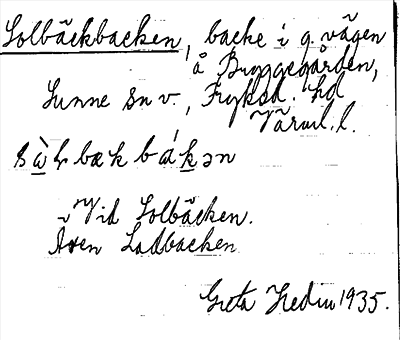 Solbäckbacken, backe i g. vägen
å Bryggegården,
Sunne sn v., Fryksd. hd
Värml. l.
sàlbækbákən
i Vid Solbäcken.
Även Ladbacken
Greta Hedin 1935.